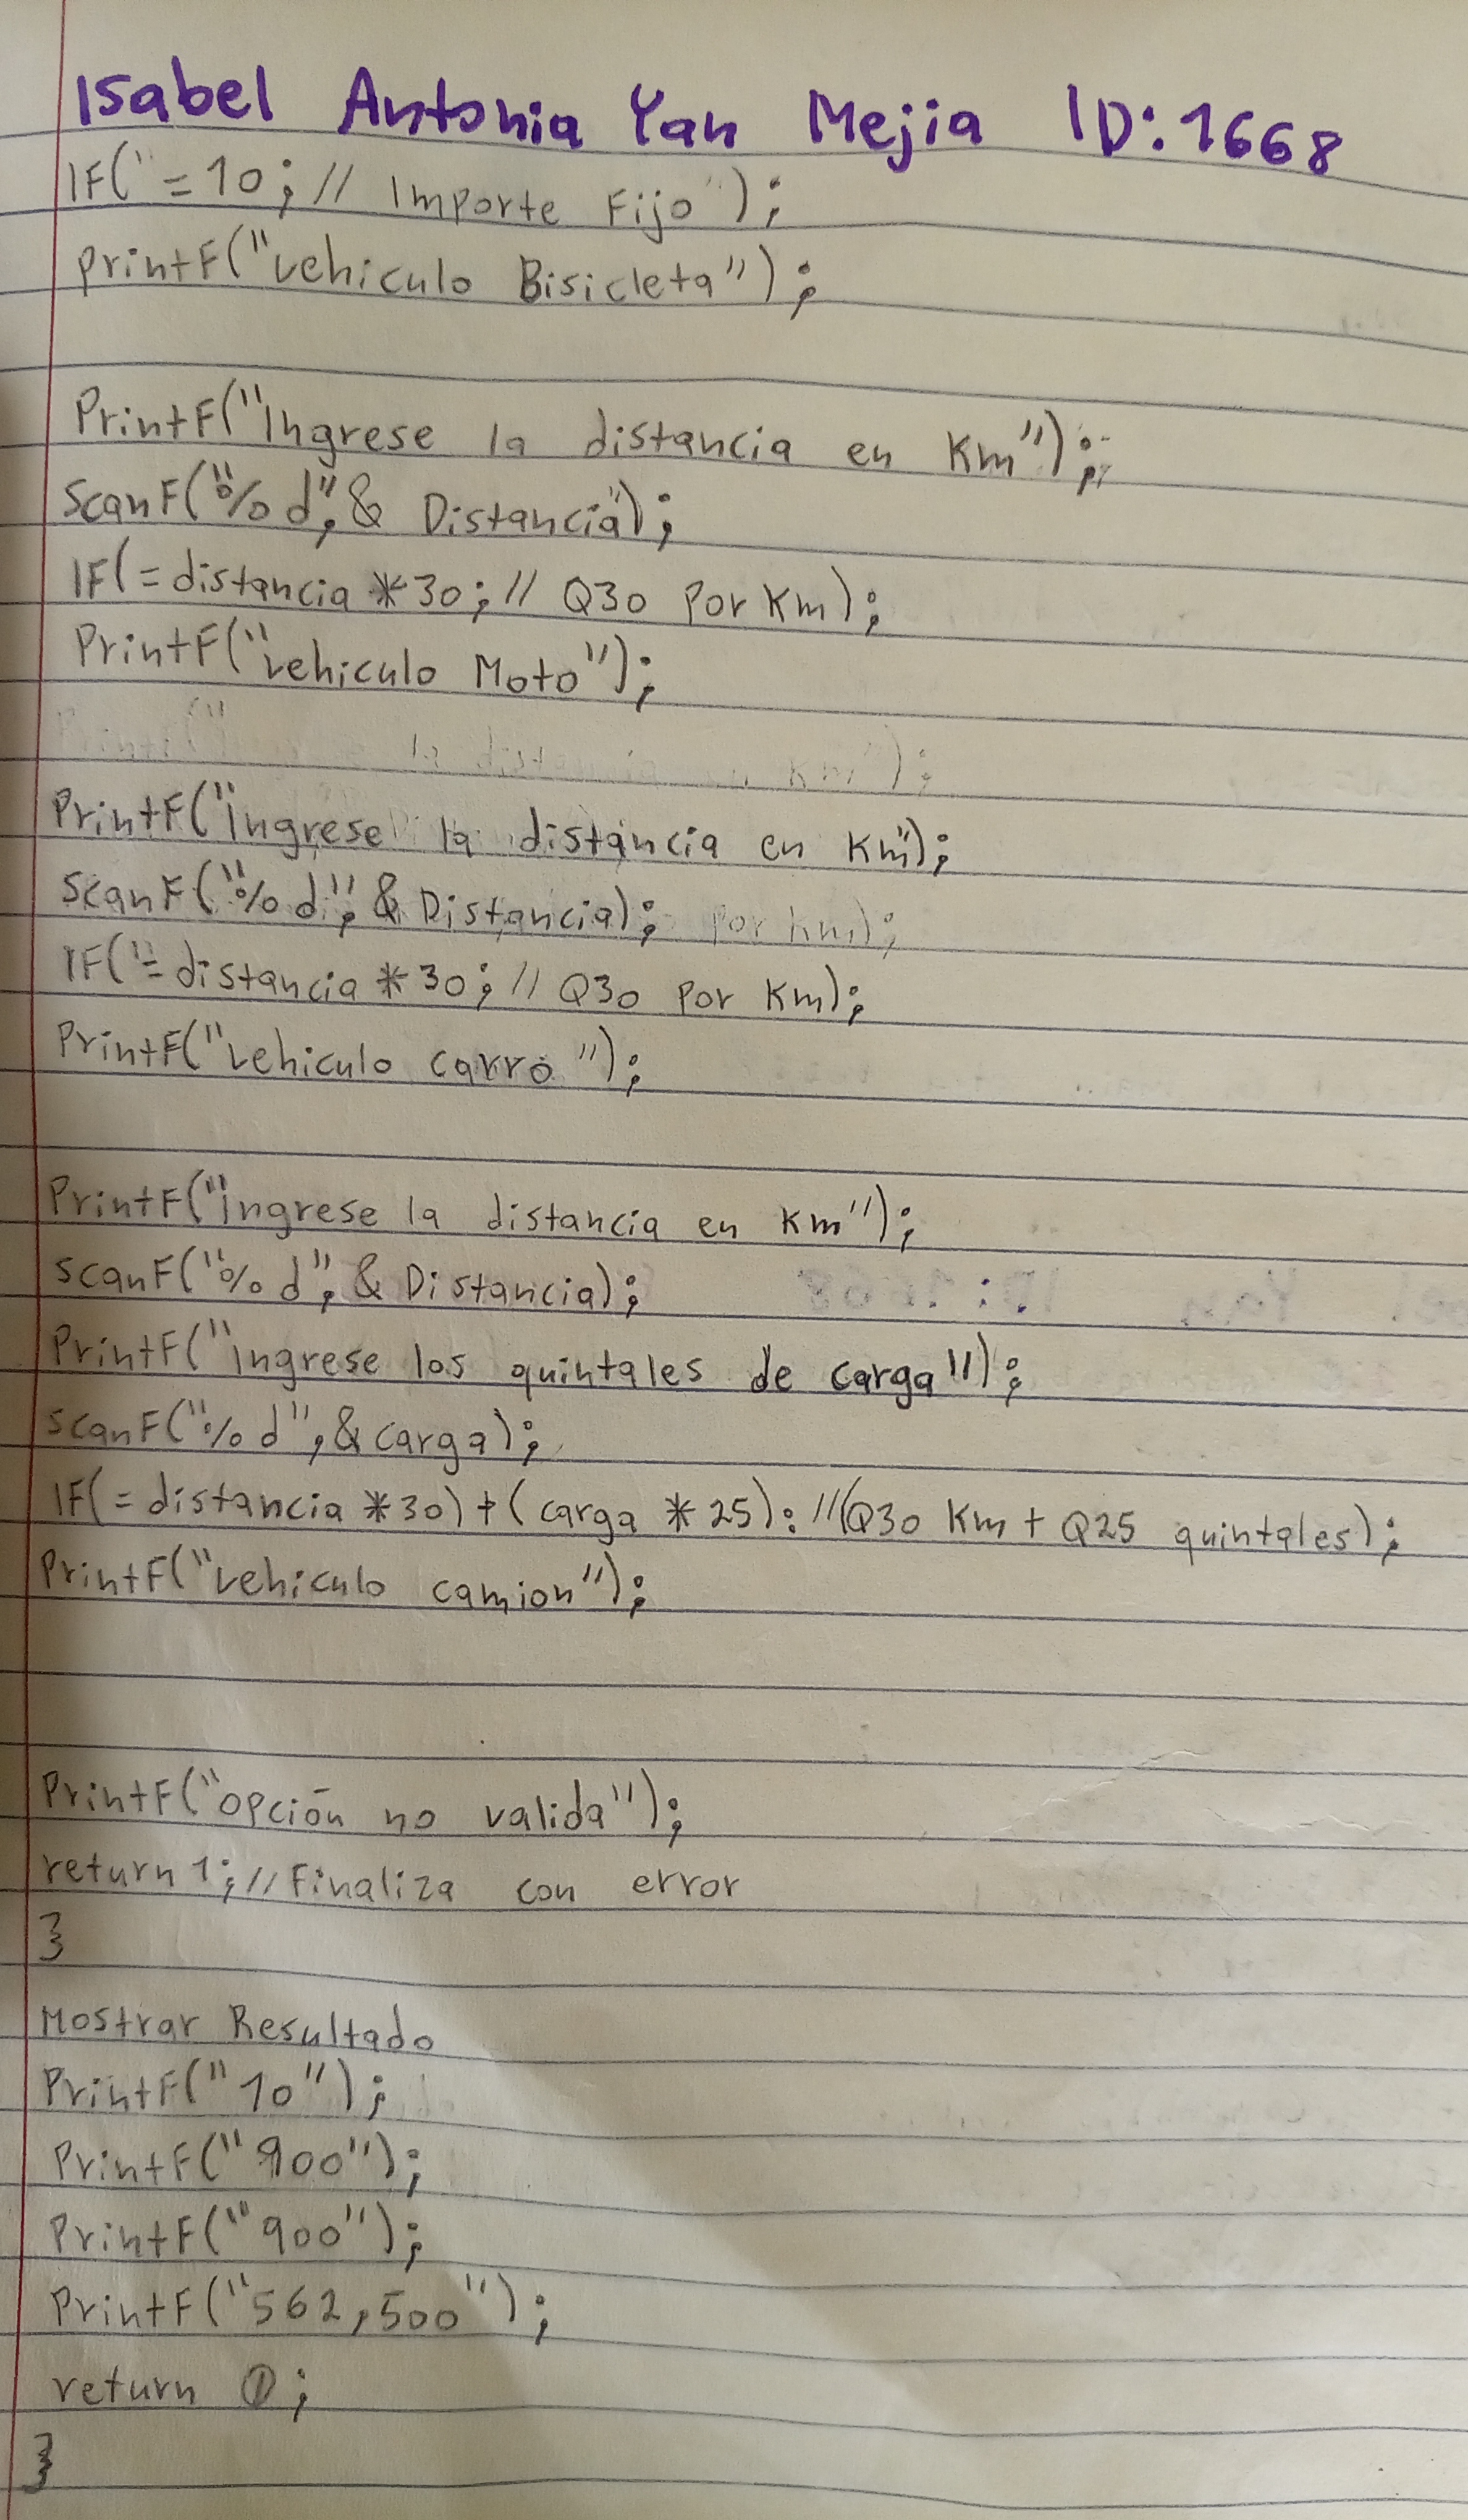 Isabel Antonia Yan Mejia ID:1668
IF("=10;// Importe Fijo");
printF("vehiculo Bisicleta");
PrintF("Ingrese la distancia en Km");
scanF("%d",& Distancia");
IF(=distancia *30;// Q30 Por Km);
PrintF("vehiculo Moto");
la distancia en Km");
PrintF("Ingrese la distancia en Km");
scanF("%d",& Distancia); Por Km);
IF("=distancia *30;// Q30 Por Km);
PrintF("vehiculo carro");
PrintF("Ingrese la distancia en Km");
scanF("%d",& Distancia);
PrintF("Ingrese los quintales de carga");
scanF("%d",&carga);
IF(=distancia *30)+(carga *25): //(Q30 Km + Q25 quintales);
PrintF("vehiculo camion");
PrintF("opción no valida");
return 1;// Finaliza con error
}
Mostrar Resultado
PrintF("10");
PrintF("900");
PrintF("900");
PrintF("562,500");
return 0;
}